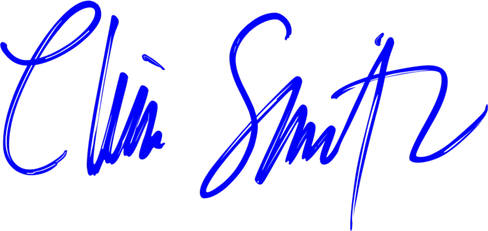 Chris Smith